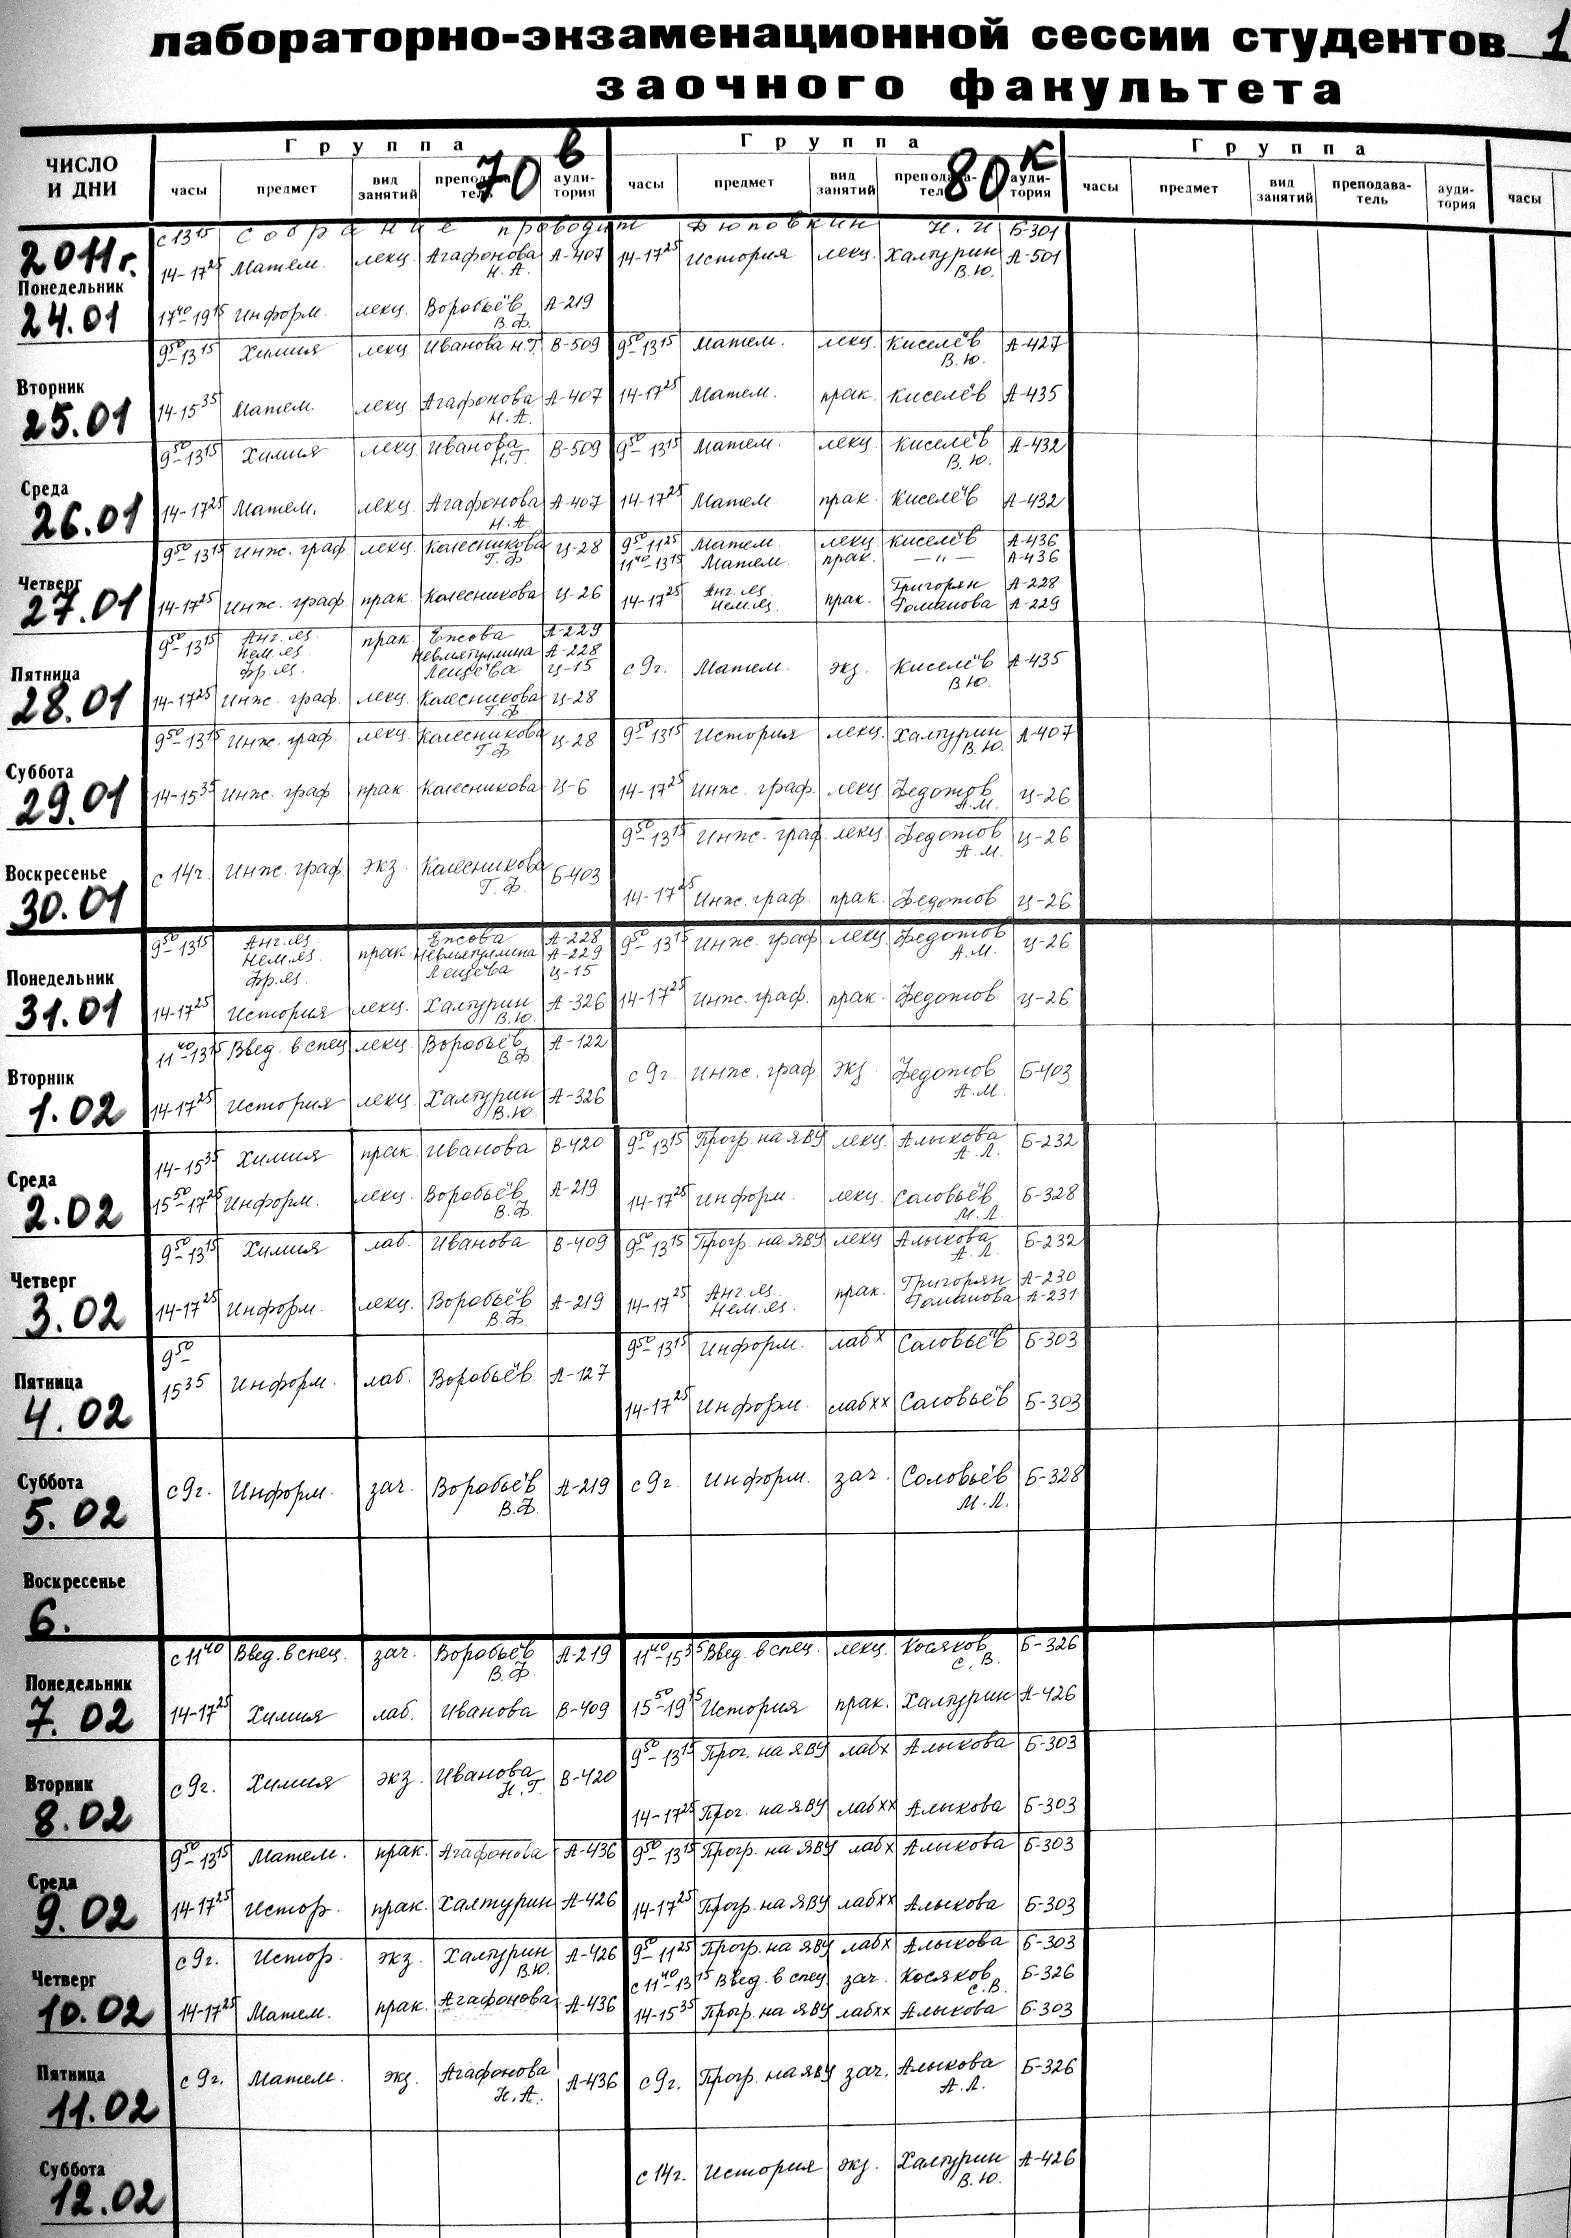 лабораторно-экзаменационной сессии студентов 1
заочного факультета
ЧИСЛО И ДНИ
Группа 70 в
Группа 80 к
Группа
часы предмет вид занятий преподаватель аудитория часы предмет вид занятий преподаватель аудитория часы предмет вид занятий преподаватель аудитория часы
2011г.
с 13¹⁵ собрание проводит Дюповкин Н.И Б-301
Понедельник 24.01
14-17²⁵ Матем. лекц. Агафонова Н.А. А-407 14-17²⁵ История лекц. Халтурин В.Ю. А-501
17⁴⁰-19¹⁵ Информ. лекц. Воробьёв В.Ф. А-219
Вторник 25.01
9⁵⁰-13¹⁵ Химия лекц. Иванова Н.Г. В-509 9⁵⁰-13¹⁵ Матем. лекц. Киселёв В.Ю. А-427
14-15³⁵ Матем. лекц. Агафонова Н.А. А-407 14-17²⁵ Матем. прак. Киселёв А-435
Среда 26.01
9⁵⁰-13¹⁵ Химия лекц. Иванова Н.Г. В-509 9⁵⁰-13¹⁵ Матем. лекц. Киселёв В.Ю. А-432
14-17²⁵ Матем. лекц. Агафонова Н.А. А-407 14-17²⁵ Матем. прак. Киселёв А-432
Четверг 27.01
9⁵⁰-13¹⁵ Инж. граф. лекц. Колесникова Г.Ф. Ц-28 9⁵⁰-11²⁵ Матем. лекц. Киселёв А-436
11⁴⁰-13¹⁵ Матем. прак. —"— А-436
14-17²⁵ Инж. граф. прак. Колесникова Ц-26 14-17²⁵ Анг.яз. прак. Григорян А-228
Нем.яз. Томанова А-229
Пятница 28.01
9⁵⁰-13¹⁵ Анг.яз. прак. Ежова А-229
Нем.яз. Невмятуллина А-228
Фр.яз. Лещева Ц-15 с 9г. Матем. экз. Киселёв В.Ю. А-435
14-17²⁵ Инж. граф. лекц. Колесникова Г.Ф. Ц-28
Суббота 29.01
9⁵⁰-13¹⁵ Инж. граф. лекц. Колесникова Г.Ф. Ц-28 9⁵⁰-13¹⁵ История лекц. Халтурин В.Ю. А-407
14-15³⁵ Инж. граф прак. Колесникова Ц-6 14-17²⁵ Инж. граф. лекц Федотов А.М. Ц-26
Воскресенье 30.01
9⁵⁰-13¹⁵ Инж. граф. лекц. Федотов А.М. Ц-26
с 14г. Инж. граф. экз. Колесникова Г.Ф. Б-403
14-17²⁵ Инж. граф. прак. Федотов Ц-26
Понедельник 31.01
9⁵⁰-13¹⁵ Анг.яз. прак. Ежова А-228 9⁵⁰-13¹⁵ Инж. граф лекц. Федотов А.М. Ц-26
Нем.яз. Невмятуллина А-229
Фр.яз. Лещева Ц-15
14-17²⁵ История лекц. Халтурин В.Ю. А-326 14-17²⁵ Инж. граф. прак. Федотов Ц-26
Вторник 1.02
11⁴⁰-13¹⁵ Введ. в спец лекц. Воробьёв В.Ф. А-122 с 9г. Инж. граф экз. Федотов А.М. Б-403
14-17²⁵ История лекц. Халтурин В.Ю. А-326
Среда 2.02
14-15³⁵ Химия прак. Иванова В-420 9⁵⁰-13¹⁵ Прогр. на ЯВУ лекц. Алыкова А.Л. Б-232
15⁵⁰-17²⁵ Информ. лекц. Воробьёв В.Ф. А-219 14-17²⁵ Информ. лекц. Соловьёв М.Л. Б-328
Четверг 3.02
9⁵⁰-13¹⁵ Химия лаб. Иванова В-409 9⁵⁰-13¹⁵ Прогр. на ЯВУ лекц Алыкова А.Л. Б-232
14-17²⁵ Информ. лекц. Воробьёв В.Ф. А-219 14-17²⁵ Анг.яз. прак. Григорян А-230
Нем.яз. Томанова А-231
Пятница 4.02
9⁵⁰-15³⁵ Информ. лаб. Воробьёв А-127 9⁵⁰-13¹⁵ Информ. лабх Соловьёв Б-303
14-17²⁵ Информ. лабхх Соловьёв Б-303
Суббота 5.02
с 9г. Информ. зач. Воробьёв В.Ф. А-219 с 9г. Информ. зач. Соловьёв М.Л. Б-328
Воскресенье 6.
Понедельник 7.02
с 11⁴⁰ Введ. в спец. зач. Воробьёв В.Ф. А-219 11⁴⁰-15³⁵ Введ. в спец. лекц. Косяков С.В. Б-326
14-17²⁵ Химия лаб. Иванова В-409 15⁵⁰-19¹⁵ История прак. Халтурин А-426
Вторник 8.02
9⁵⁰-13¹⁵ Прог. на ЯВУ лабх Алыкова Б-303
с 9г. Химия экз. Иванова Н.Г. В-420
14-17²⁵ Прог. на ЯВУ лабхх Алыкова Б-303
Среда 9.02
9⁵⁰-13¹⁵ Матем. прак. Агафонова А-436 9⁵⁰-13¹⁵ Прогр. на ЯВУ лабх Алыкова Б-303
14-17²⁵ Истор. прак. Халтурин А-426 14-17²⁵ Прогр. на ЯВУ лабхх Алыкова Б-303
Четверг 10.02
с 9г. Истор. экз. Халтурин В.Ю. А-426 9⁵⁰-11²⁵ Прогр. на ЯВУ лабх Алыкова Б-303
с 11⁴⁰-13¹⁵ Введ. в спец. зач. Косяков С.В. Б-326
14-17²⁵ Матем. прак. Агафонова А-436 14-15³⁵ Прогр. на ЯВУ лабхх Алыкова Б-303
Пятница 11.02
с 9г. Матем. экз. Агафонова Н.А. А-436 с 9г. Прогр. на ЯВУ зач. Алыкова А.Л. Б-326
Суббота 12.02
с 14г. История экз. Халтурин В.Ю. А-426